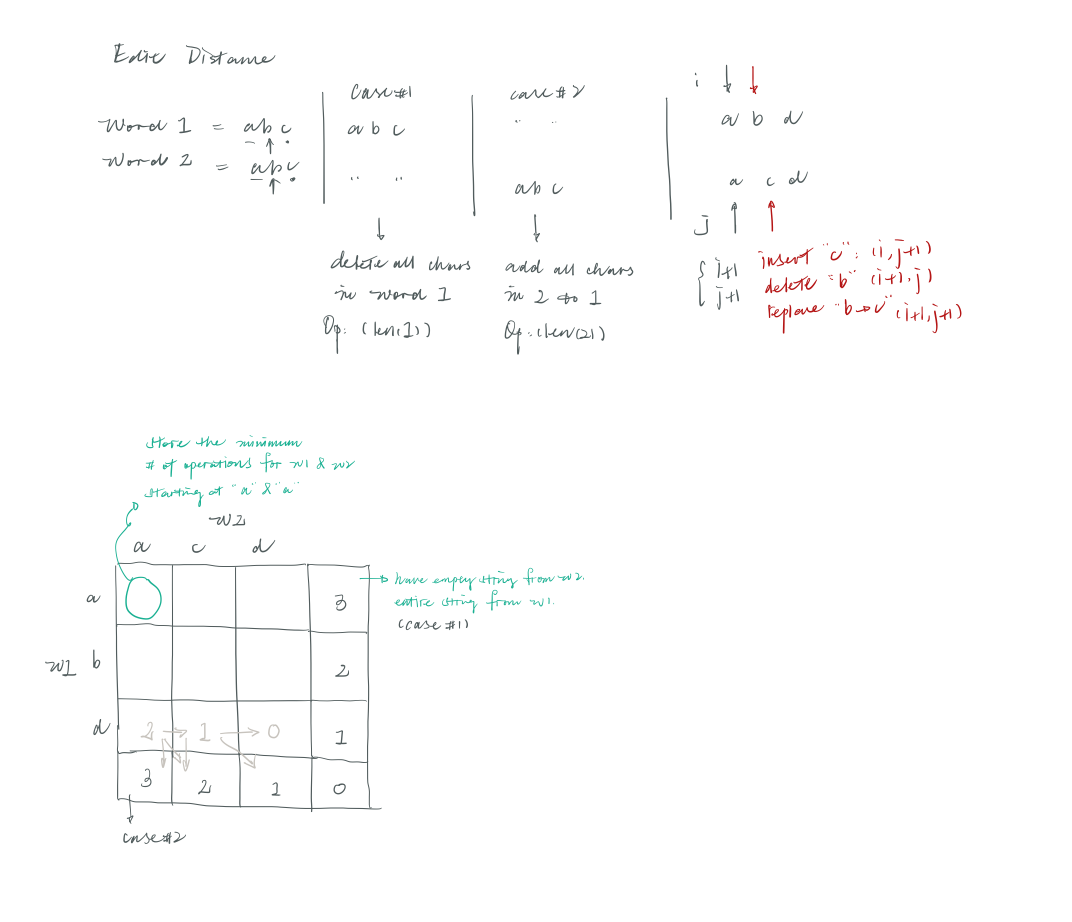 Edit Distance
Word 1 = abc
Word 2 = abc
Case#1
a b c
" "
delete all chars
in word 1
Op: (len(1))
case #2
" "
abc
add all chars
in 2 to 1
Op: (len(2))
i
a b d
a c d
j
{ i+1
j+1
insert "c": (i, j+1)
delete "b" (i+1, j)
replace "b→c" (i+1, j+1)
Store the minimum
# of operations for w1 & w2
starting at "a" & "a"
w2
a c d
a 3
w1 b 2
d 2 1 0 1
3 2 1 0
have empty string from w2.
entire string from w1.
(case #1)
case#2